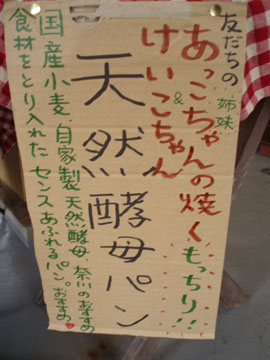 友だちの姉妹
あっこちゃん
&
けいこちゃんの焼くもっちり!!
天然酵母パン
国産小麦 自家製天然酵母 奈川のおすすめ
食材をとり入れたセンスあふれるパン。おすすめ♥